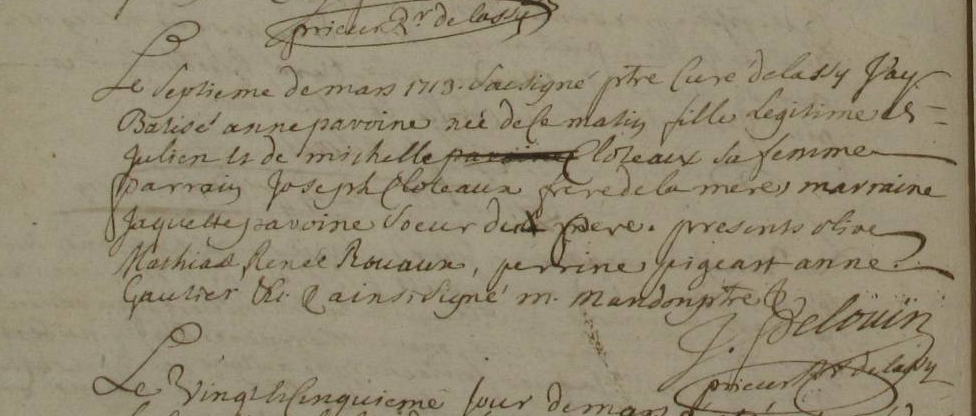 prieur Rr de lassy
Le Septieme de mars 1713. Soussigné ptre Curé de lassy J'ay
Batisé anne pavoine neé de Ce matin fille Legitime de
Julien et de michelle pavoine Cloteaux sa femme
parrain Joseph Cloteaux frere de la mere, marraine
Jaquette pavoine Soeur du pere. presents olive
Mathias Renée Rouaux, perrine pigeart anne
Gautier &c. ainsi Signé m. mandon ptre &
J. Jdeloüin
prieur Rr de lassy
Le Vingt Cinquieme Jour de mars